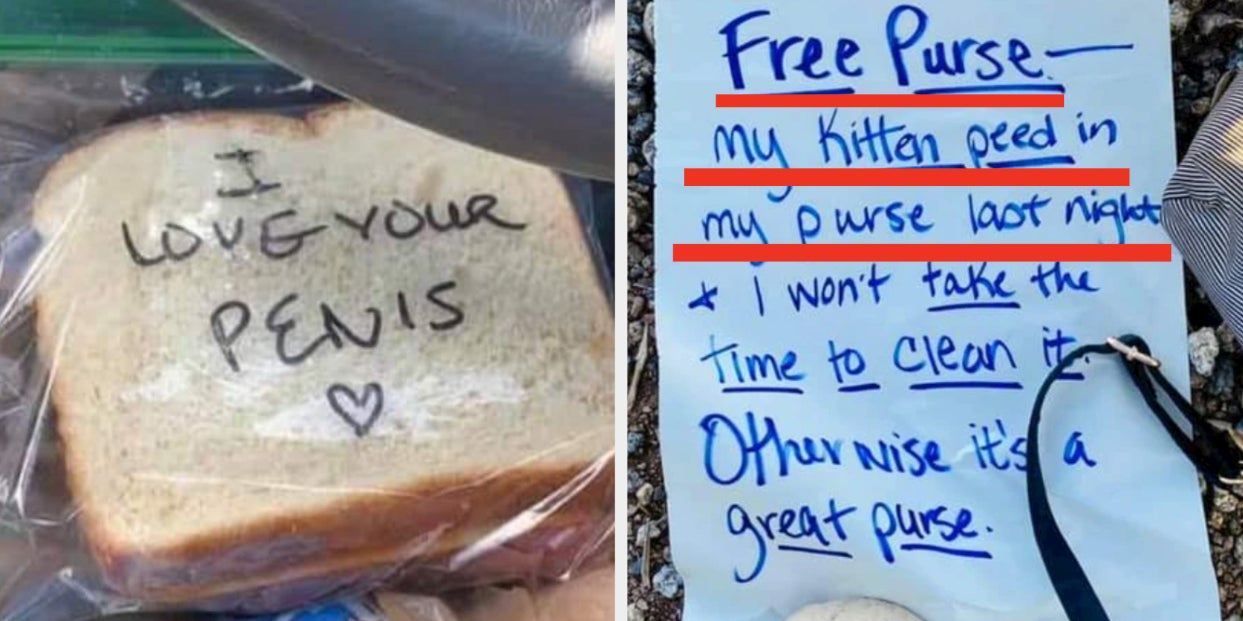 I
LOVE YOUR
PENIS
♡
Free Purse—
my kitten peed in
my purse last night
+ i won't take the
time to clean it.
Otherwise it's a
great purse.